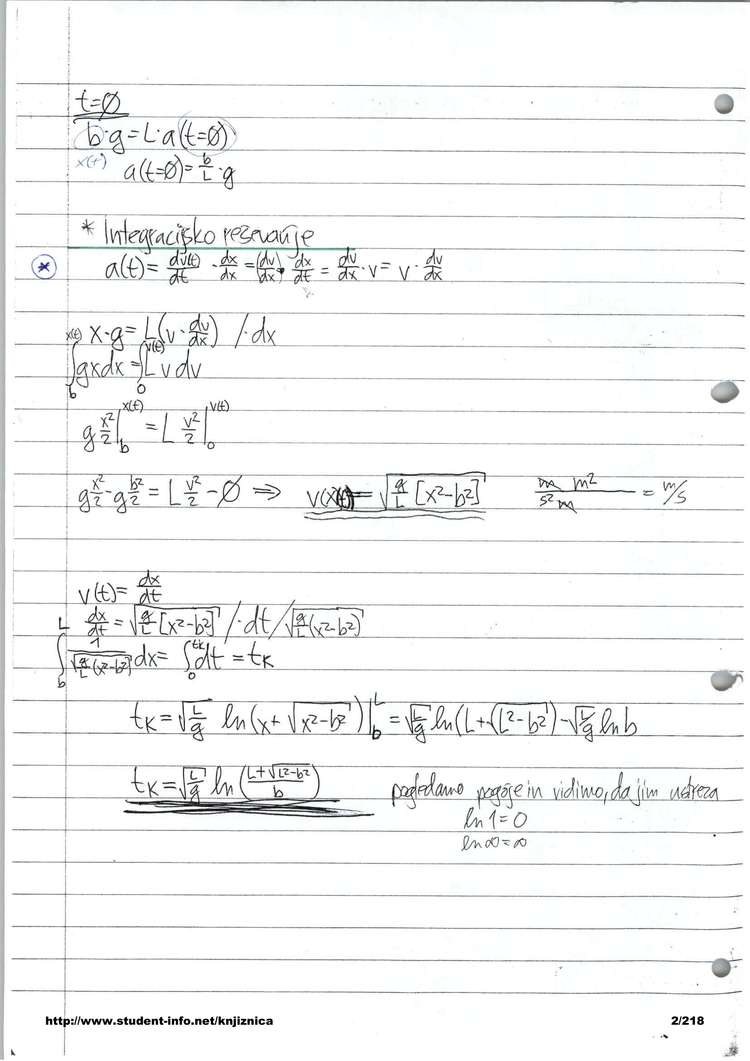 t=∅
b·g=L·a(t=∅)
x(t)
a(t=∅)=b/L·g
* Integracijsko reševanje
* a(t)= dv(t)/dt · dx/dx = (dv/dx)· dx/dt = dv/dx · v = v · dv/dx
x·g= L(v· dv/dx) /·dx
∫_b^x(t) gxdx = ∫_0^v(t) L v dv
g x²/2 |_b^x(t) = L v²/2 |_0^v(t)
g x²/2 - g b²/2 = L v²/2 - ∅ ⇒ v(x(t)) = √(g/L [x²-b²]) m m²/s² m = m/s
v(t)= dx/dt
dx/dt = √(g/L [x²-b²]) /·dt /√(g/L (x²-b²))
∫_b^L 1/√(g/L (x²-b²)) dx = ∫_0^tk dt = tk
tk = √(L/g) ln(x+√(x²-b²)) |_b^L = √(L/g) ln(L+√(L²-b²)) - √(L/g) ln b
tk = √(L/g) ln((L+√(L²-b²))/b) pogledamo pogoje in vidimo, da jim ustreza
ln 1 = 0
ln ∞ = ∞
http://www.student-info.net/knjiznica 2/218